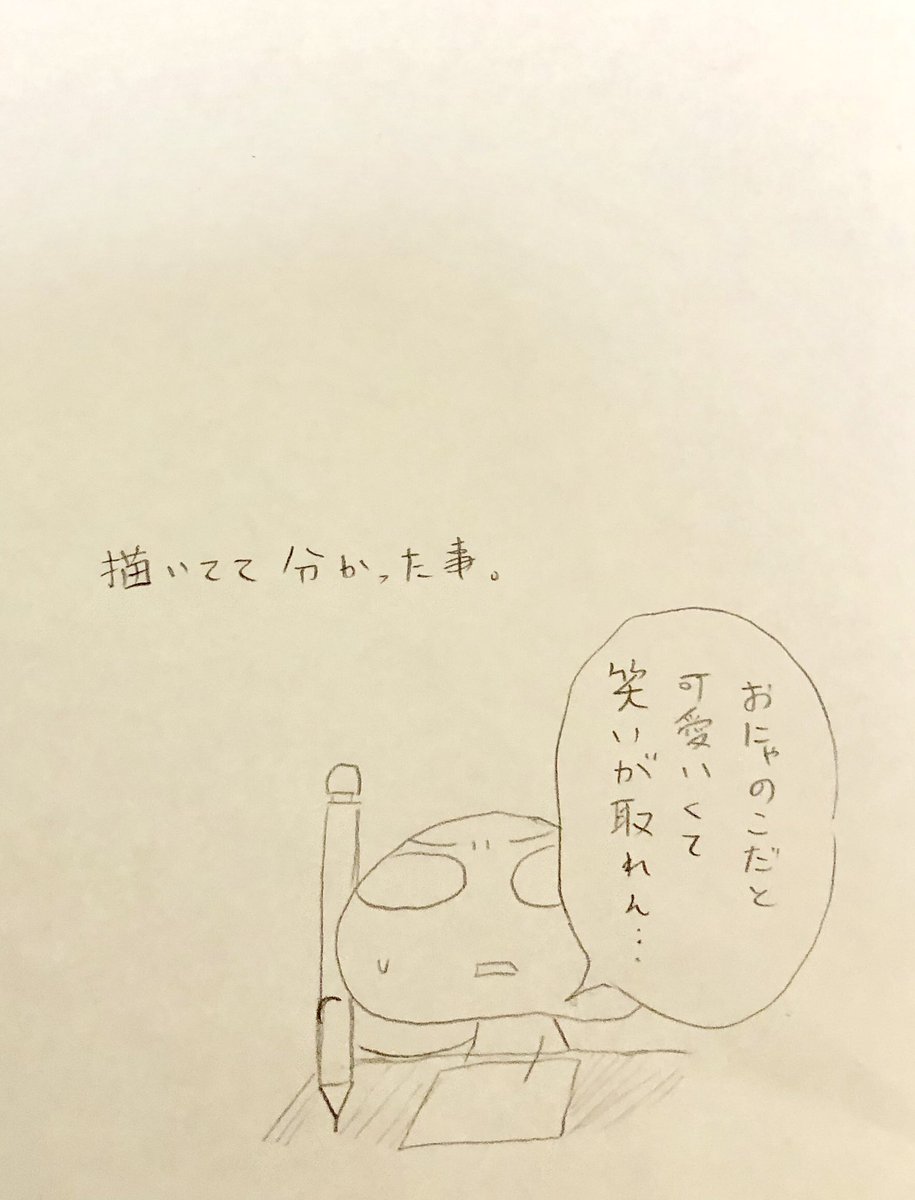 描いてて分かった事。
おにゃのこだと
可愛いくて
笑いが取れん…